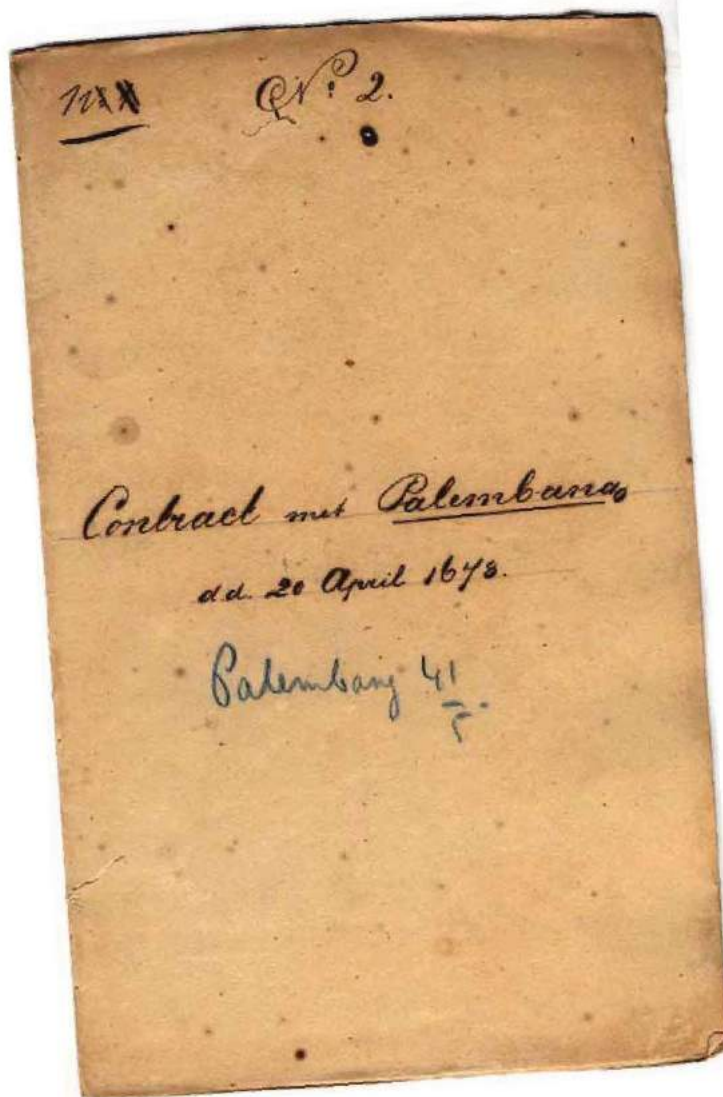 No. 2.
Contract met Palembang
d.d. 20 April 1678.
Palembang 41
5.